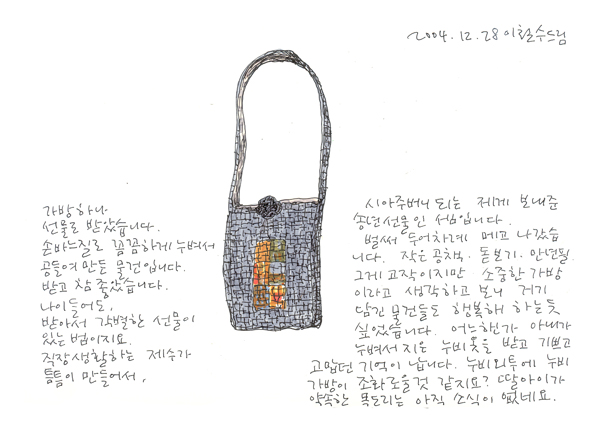 2004. 12. 28 이철수드림
가방하나
선물로 받았습니다.
손바느질로 꼼꼼하게 누벼서
공들여 만든 물건입니다.
받고 참 좋았습니다.
나이들어도,
받아서 각별한 선물이
있는 법이지요.
직장생활하는 제수가
틈틈이 만들어서,
시아주버니 되는 제게 보내준
송년선물인 셈입니다.
벌써 두어차례 메고 나갔습
니다. 작은 공책·돋보기·만년필.
그게 고작이지만 소중한 가방
이라고 생각하고 보니 거기
담긴 물건들도 행복해 하는듯
싶었습니다. 어느해인가 아내가
누벼서 지은 누비옷을 받고 기쁘고
고맙던 기억이 납니다. 누비외투에 누비
가방이 조화로울것 같지요? 딸아이가
약속한 목도리는 아직 소식이 없네요.